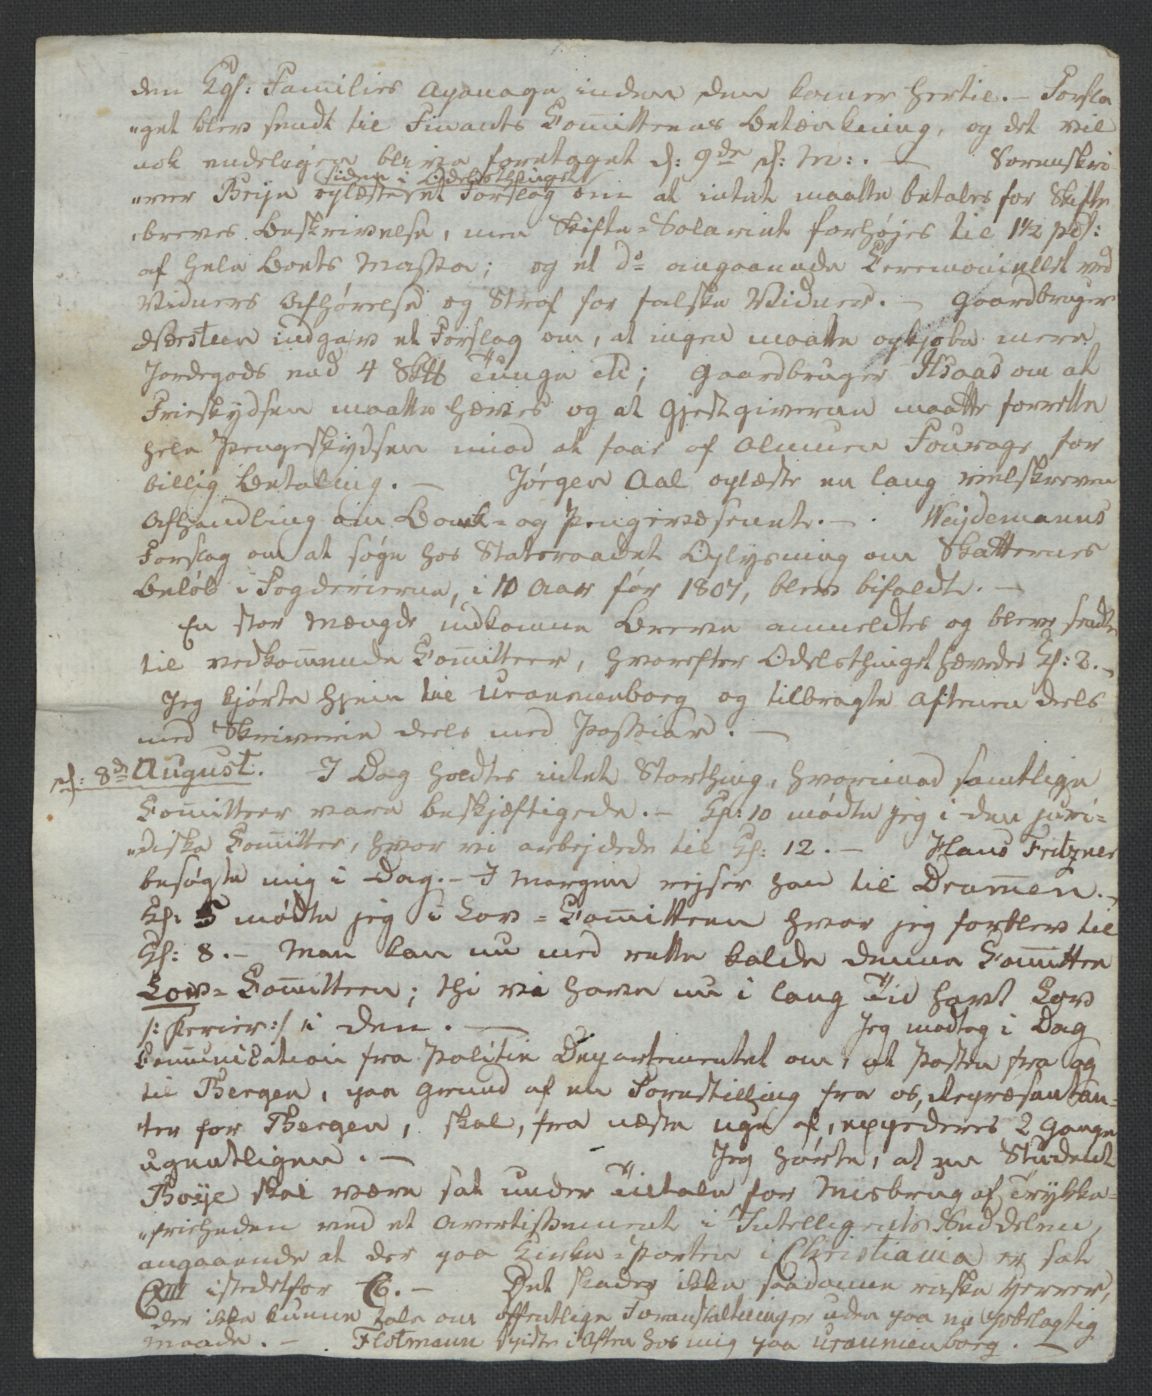 den Kgl: Families Apanage inden den komer hertil. – Forsla
„get blev sendt til Finants Committeens Betænkning, og det vil
nok endeligen blive foretaget d: 9de d: M: . – Sorenskri
„ver Beijn siden i Odelsthinget oplæste et Forslag om at intet maatte betales for Skifte
„breves Beskrivelse, men Skifte-Solariet forhøjes til 1½ pCt:
af hele Boets Massa; og et do angaaende Ceremoniellet ved
Vidners Afhørelse og Straf for falske Vidner. – Gaardbruger
Forslag om, at ingen maatte opkjøbe mere
Jordegods end 4 Sktt Tunge etc; Gaardbruger Ilsaas om at
Frieskydsen maatte hæves og at Gjestgiverne maatte forrette
hele Pengeskydsen imod at faae af Almuen Fourage for
billig Betaling. – Jørgen Aal oplæste en lang velskreven
Afhandling om Bank- og Pengevæsenet. – . Weydemanns
Forslag om at søge hos Statsraadet Oplysning om Skatternes
Beløb i Fogderierne, i 10 Aar før 1807, blev bifaldt. –
En stor Mængde indkomne Breve anmeldtes og bleve sendte
til vedkommende Committeer, hvorefter Odelsthinget hævedes Kl: 2. –
Jeg kjørte hjem til Uranienborg og tilbragte Aftenen deels
med Skriverie deels med Passiar. –
d: 8de August. I Dag holdtes intet Storthing, hvorimod samtlige
Committeer vare beskjæftigede. – Kl: 10 mødte jeg i den juri-
„diske Committee, hvor vi arbejdede til Kl: 12. – Hans Fritzner
besøgte mig i Dag. – I Morgen rejser han til Drammen. –
Kl: 5 mødte jeg i Lov-Committeen hvor jeg forblev til
Kl: 8. – Man kan nu med rette kalde denne Committee
Lov-Committeen; thi vi have nu i lang Tid havt Lov
/: Ferier :/ i den. – Jeg modtog i Dag
Communication fra Politie Departementet om, at Posten fra og
til Bergen, paa Grund af en Forestilling fra os, Repræsentan-
ter for Bergen, skal, fra næste uge af, expederes 2 Gange
ugentligen. – Jeg hørte, at en Student
Boije skal være sat under Tiltale for Misbrug af Trykke-
„friheden ved et Avertissement i Intelligents Seddelen,
angaaende at der paa Kirke-Porten i Christiania er sat
CXIII istedetfor C6. – Det skader ikke saadanne raske Herrer,
der ikke kunne tale om offentlige Foranstaltninger uden paa en pøbelagtig
maade. – Flotmann spiste i Aften hos mig paa Uranienborg. –